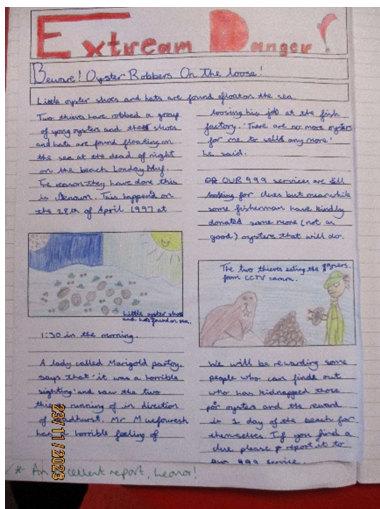 Extream Danger!
Beware! Oyster Robbers On the loose!
Little oyster shoes and hats are found afloat on the sea
Two thieves have robbed a group
of yong oysters and their shoes
and hats are found floating on
the sea at the dead of night
on the beach
The reason they have done this
is unknown. This happened on
the 28th of April 1997 at
Little oyster shoes
and hats found on sea.
1:30 in the morning.
A lady called Marigold
says that 'it was a horrible
sighting' and saw the two
thieves running of in direction
of Mr
had a horrible feeling of
loosing his job at the fish
factory. 'There are no more oysters
for me to sell any more'
he said.
OUR 999 services are still
looking for clues but meanwhile
some fisherman have kindly
donated some more (not as
good) oysters that will do.
The two thieves eating the oysters
from CCTV camera.
We will be rewarding some
people who can finde out
who has kidnapped those
poor oysters and the reward
is 1 day of the beach for
themselves If you find a
clue please report it to
our 999 service.
22/11/2023
* An excellent report, Leonor!